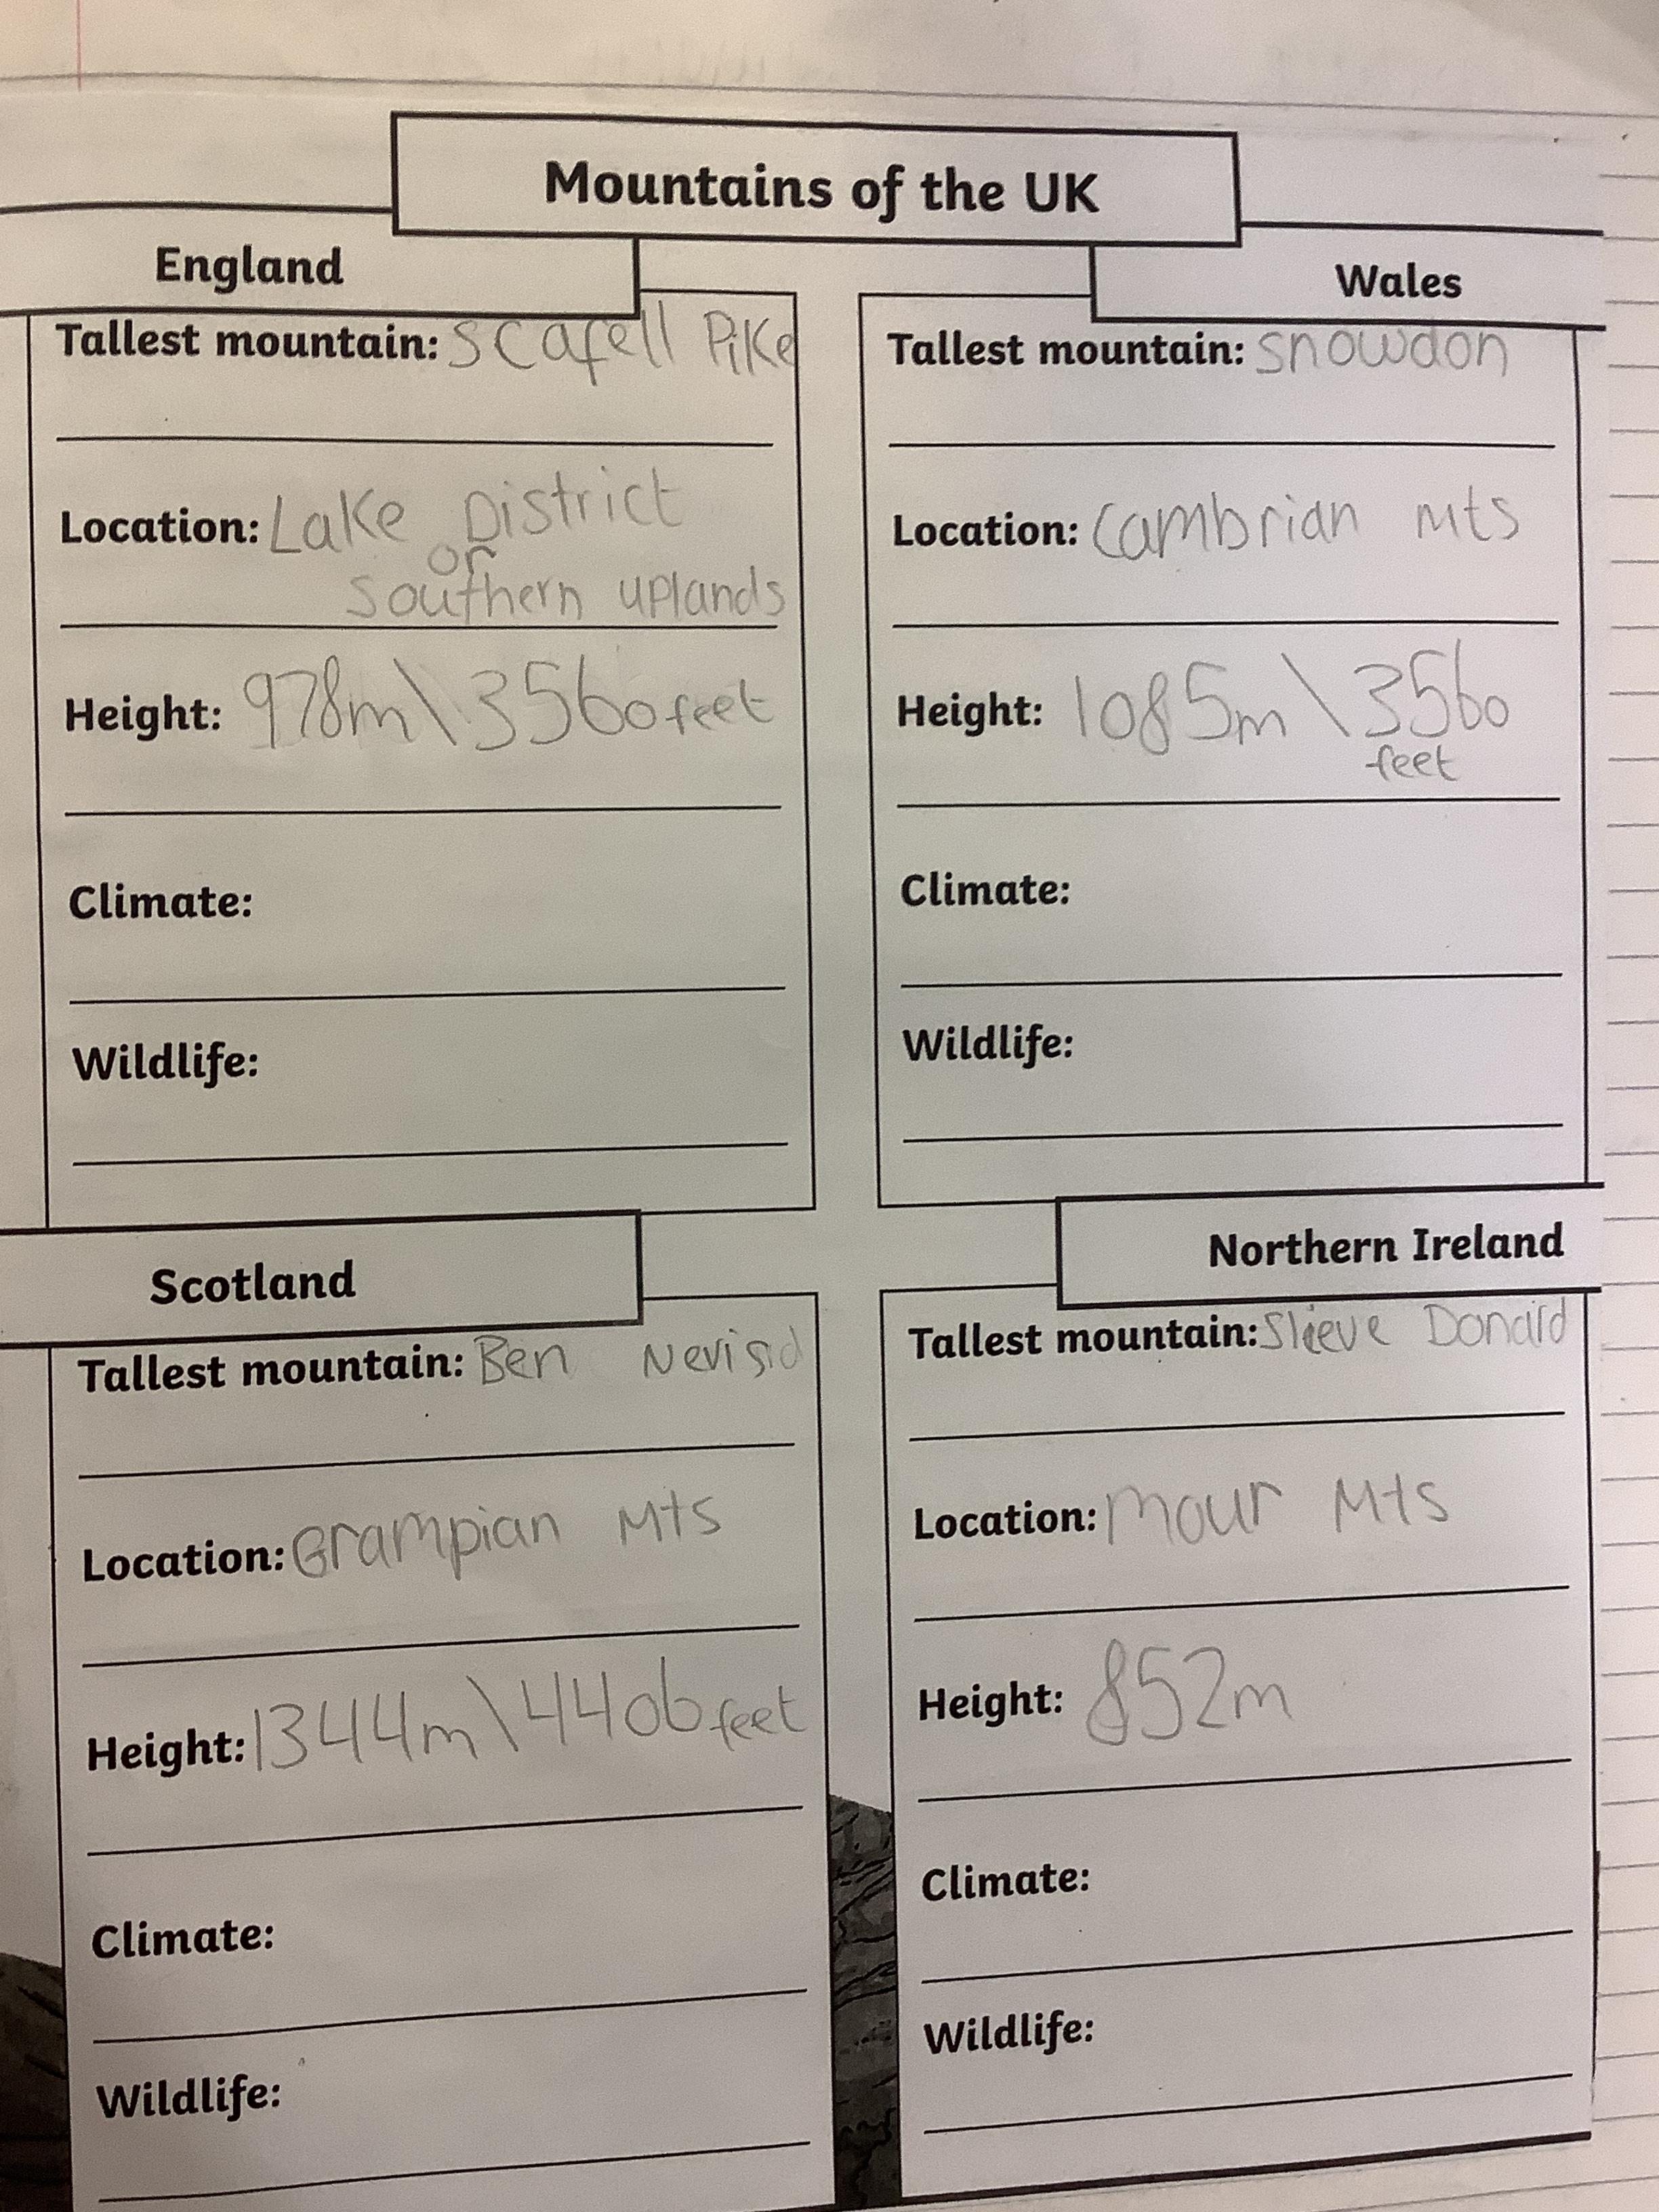 Mountains of the UK
England
Tallest mountain: Scafell Pike
Location: Lake District
or
Southern uplands
Height: 978m\3560feet
Climate:
Wildlife:
Wales
Tallest mountain: snowdon
Location: Cambrian Mts
Height: 1085m\3560
feet
Climate:
Wildlife:
Scotland
Tallest mountain: Ben Nevisid
Location: Grampian Mts
Height: 1344m\4406feet
Climate:
Wildlife:
Northern Ireland
Tallest mountain: Slieve Donard
Location: mour Mts
Height: 852m
Climate:
Wildlife: